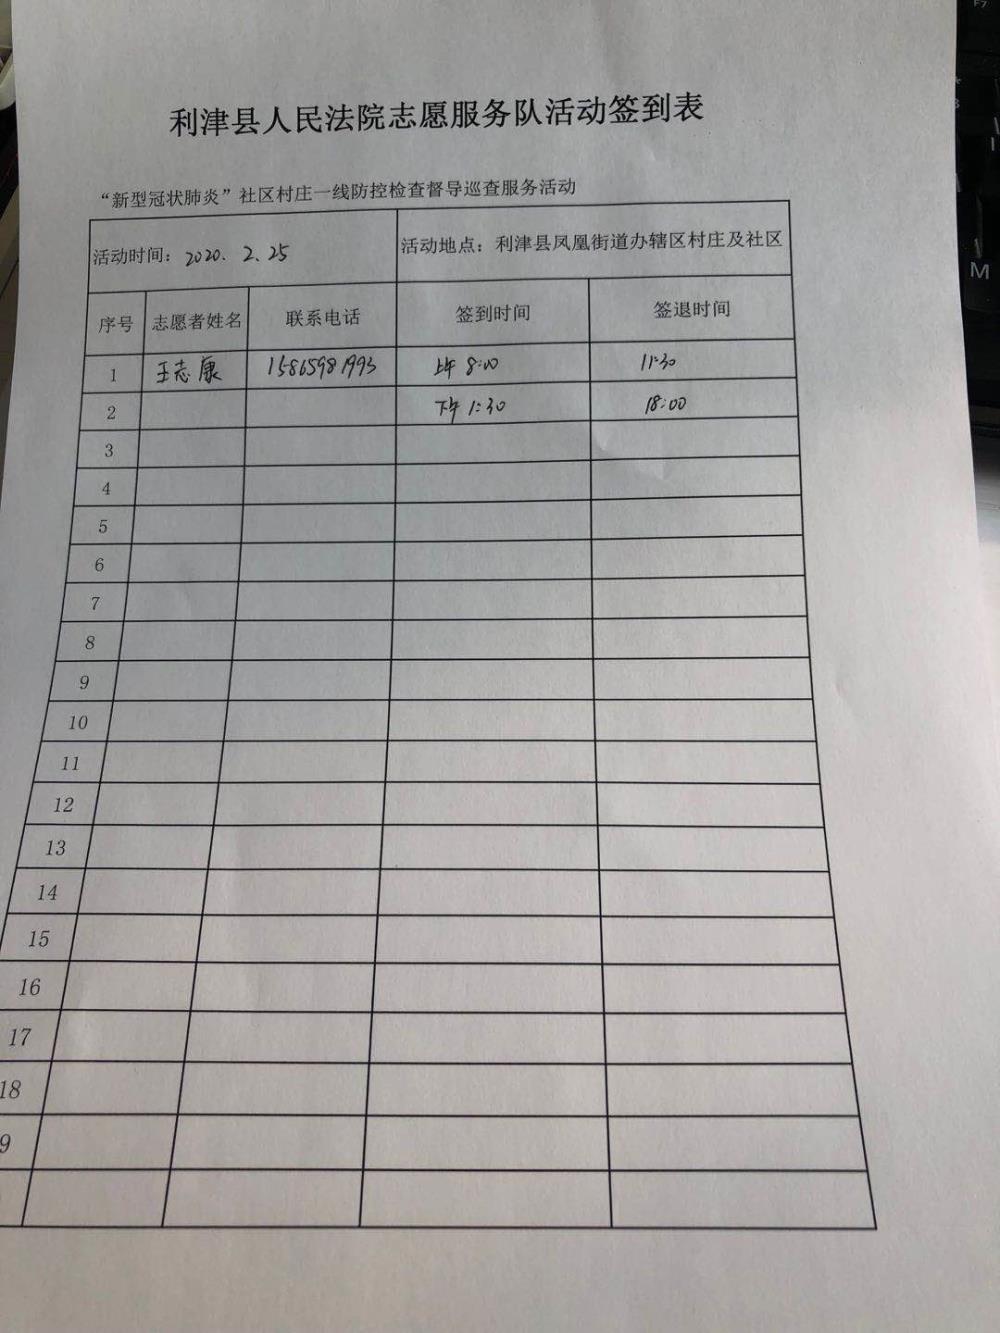 利津县人民法院志愿服务队活动签到表
“新型冠状肺炎”社区村庄一线防控检查督导巡查服务活动
活动时间：2020.2.25 活动地点：利津县凤凰街道办辖区村庄及社区
序号 志愿者姓名 联系电话 签到时间 签退时间
1 王志康 15865981993 上午8:00 11:30
2 下午1:30 18:00
3
4
5
6
7
8
9
10
11
12
13
14
15
16
17
18
9
F7
M